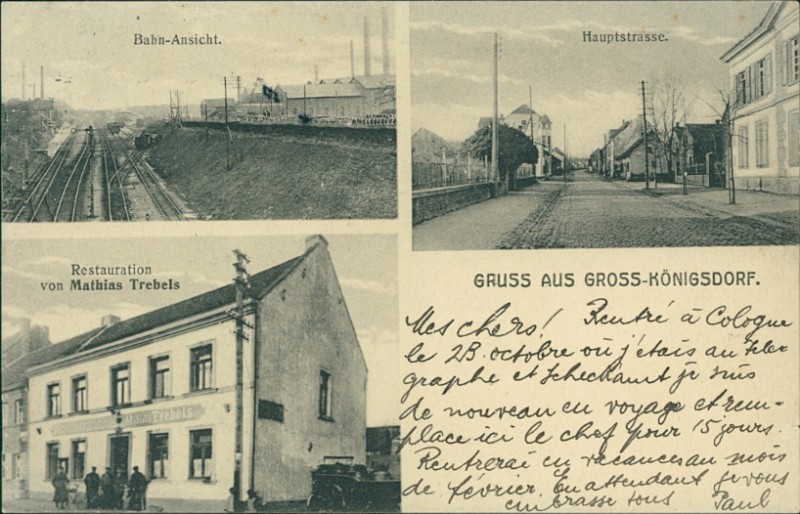 Bahn-Ansicht.
Hauptstrasse.
Restauration
von Mathias Trebels
GRUSS AUS GROSS-KÖNIGSDORF.
Mes chers! Rentré à Cologne
le 23. octobre où j'étais au Tele-
graphe et Scheckamt je suis
de nouveau en voyage et rem-
place ici le chef pour 15 jours.
Rentrerai en vacances au mois
de février. En attendant je vous
embrasse tous Paul
Trebels